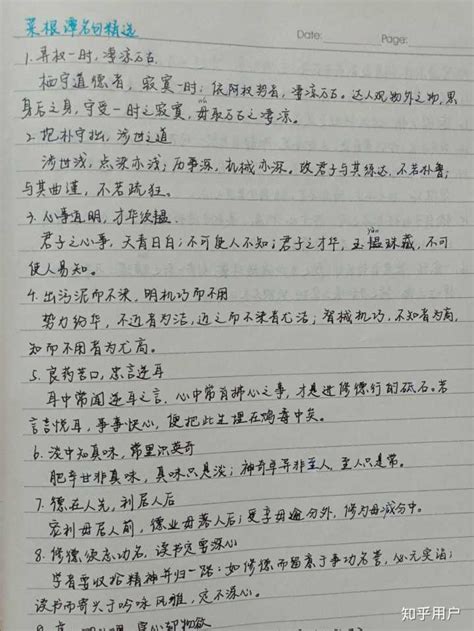 菜根谭名句精选
Date:
Page:
1. 弄权一时,凄凉万古
栖守道德者,寂寞一时;依阿权势者,凄凉万古。达人观物外之物,思
身后之身,宁受一时之寂寞,毋取万古之凄凉。
2. 抱朴守拙,涉世之道
涉世浅,点染亦浅;历事深,机械亦深。故君子与其练达,不若朴鲁;
与其曲谨,不若疏狂。
3. 心事宜明,才华须韫
君子之心事,天青日白;不可使人不知;君子之才华,玉韫珠藏,不可
使人易知。
4. 出污泥而不染,明机巧而不用
势力纷华,不近者为洁,近之而不染者尤洁;智械机巧,不知者为高,
知而不用者为尤高。
5. 良药苦口,忠言逆耳
耳中常闻逆耳之言,心中常有拂心之事,才是进修德行的砥石。若
言言悦耳,事事快心,便把此生埋在鸩毒中矣。
6. 淡中知真味,常里识英奇
肥辛甘非真味,真味只是淡;神奇卓异非至人,至人只是常。
7. 德在人先,利居人后
宠利毋居人前,德业毋落人后;受享毋逾分外,修为毋减分中。
8. 修德须忘功名,读书定要深心
学者要收拾精神并归一路:如修德而留意于事功名誉,必无实诣;
读书而寄兴于吟咏风雅,定不深心。
知乎用户